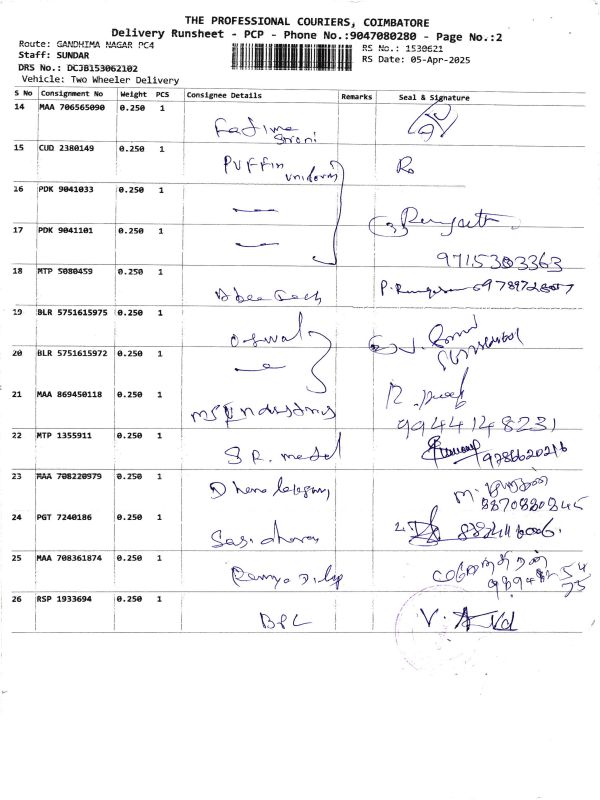 THE PROFESSIONAL COURIERS, COIMBATORE
Delivery Runsheet - PCP - Phone No.:9047080280 - Page No.:2
Route: GANDHIMA NAGAR PC4
RS No.: 1530621
Staff: SUNDAR
RS Date: 05-Apr-2025
DRS No.: DCJB153062102
Vehicle: Two Wheeler Delivery
S No Consignment No Weight PCS Consignee Details Remarks Seal & Signature
14 MAA 706565090 0.250 1
Fatima
15 CUD 2380149 0.250 1
Puffin uniforms
16 PDK 9041033 0.250 1
17 PDK 9041101 0.250 1
9715303363
18 MTP 5080459 0.250 1
19 BLR 5751615975 0.250 1
Oswal
20 BLR 5751615972 0.250 1
21 MAA 869450118 0.250 1
9944148231
22 MTP 1355911 0.250 1
S R. metal
9786620216
23 MAA 708220979 0.250 1
8870880845
24 PGT 7240186 0.250 1
Sasidharan
25 MAA 708361874 0.250 1
Ramya Dilip
26 RSP 1933694 0.250 1
BPL